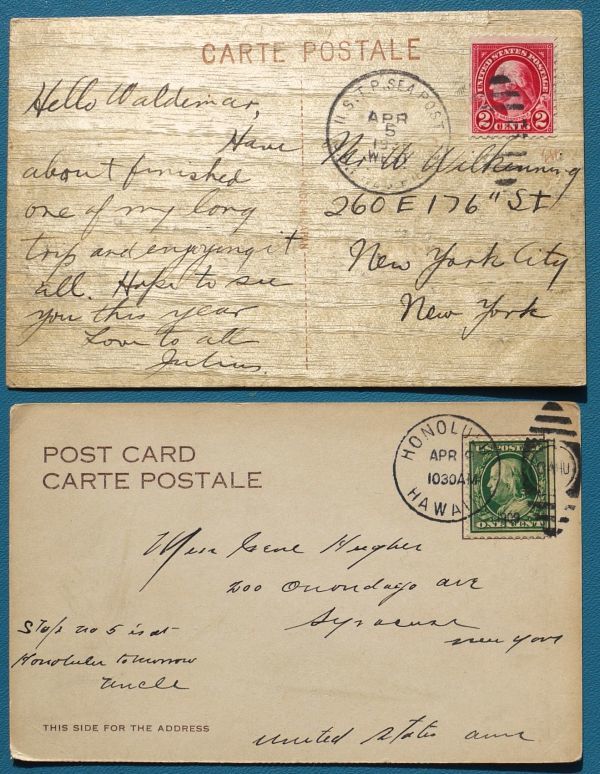 CARTE POSTALE
U.S.T.P. SEA POST
APR
5
UNITED STATES POSTAGE
2 CENTS 2
Hello Waldemar,
Have
about finished
one of my long
trip and enjoying it
all. Hope to see
you this year
Love to all
Julius.
Mr W. Wilkenning
260 E 176" St
New York City
New York
POST CARD
CARTE POSTALE
HONOLU
APR
1030AM
HAWAII
U.S. POSTAGE
ONE CENT
Miss Gene Hughes
200 Onondago ave
Syracuse
new york
Stop no 5 is at
Honolulu tomorrow
Uncle
THIS SIDE FOR THE ADDRESS
united states ame